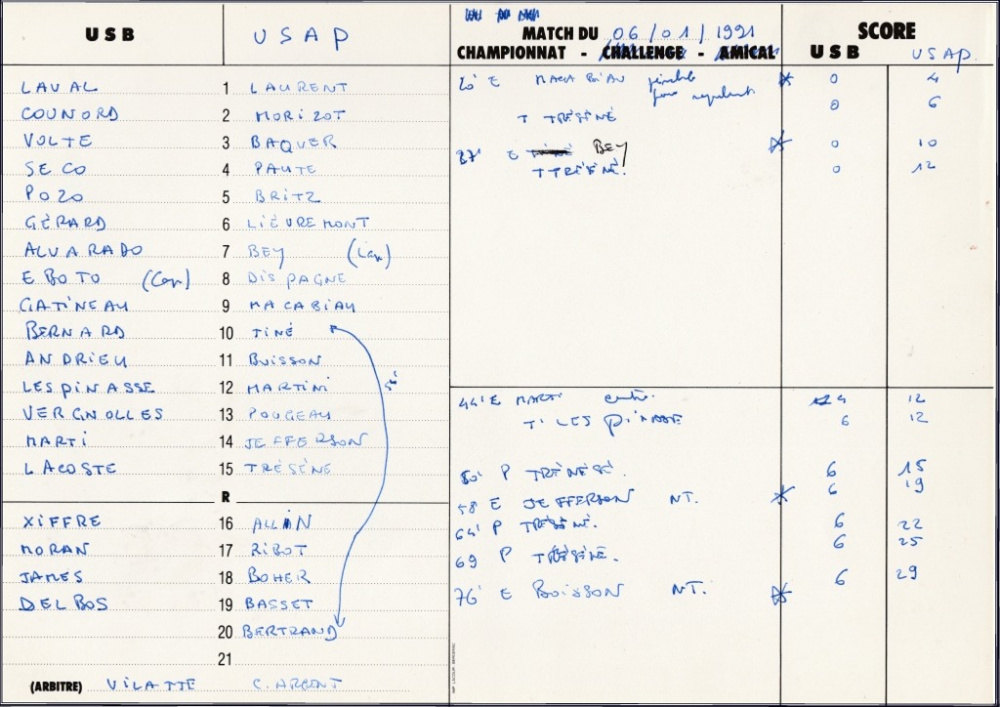 USB USAP
MATCH DU 06/01/1991
CHAMPIONNAT - CHALLENGE - AMICAL
SCORE
USB USAP
LAVAL 1 LAURENT
COUNORD 2 MORIZOT
VOLTE 3 BAQUER
SECO 4 PAUTE
POZO 5 BRITZ
GÉRARD 6 LIÈVREMONT
ALVARADO 7 BEY (Cap)
EBOTO (Cap) 8 DISPAGNE
GATINEAU 9 MACABIAU
BERNARD 10 TINÉ
ANDRIEU 11 BUISSON
LESPINASSE 12 MARTINI
VERGNOLLES 13 POUGEAU
MARTI 14 JEFFERSON
LACOSTE 15 TRÉSÈNE
R
XIFFRE 16 ALLIN
MORAN 17 RIBOT
JAMES 18 BOHER
DELBOS 19 BASSET
20 BERTRAND
21
(ARBITRE) VILATTE C. ARGENT
20' E MACABIAU pénalité 0 4
T TRÉSÈNÉ 0 6
37' E BEY 0 10
T TRÉSÈNÉ. 0 12
44' E MARTI 4 12
T. LESPINASSE 6 12
50' P TRÉNÉSÉ. 6 15
58 E JEFFERSON NT. 6 19
64' P TRÉSÈNÉ. 6 22
69 P TRÉSÈNE. 6 25
76' E BOISSON NT. 6 29